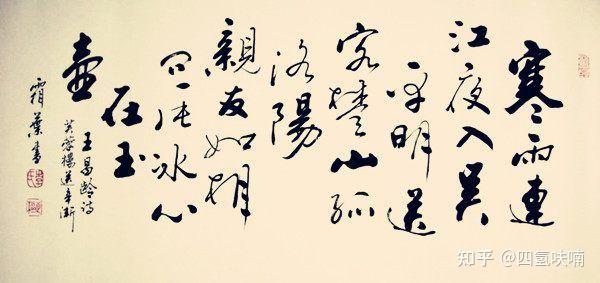 寒雨連
江夜入吳
平明送
客楚山孤
洛陽
親友如相
問一片冰心
在玉
壺
王昌齡詩
芙蓉樓送辛漸
霜葉書
知乎 @四氢呋喃